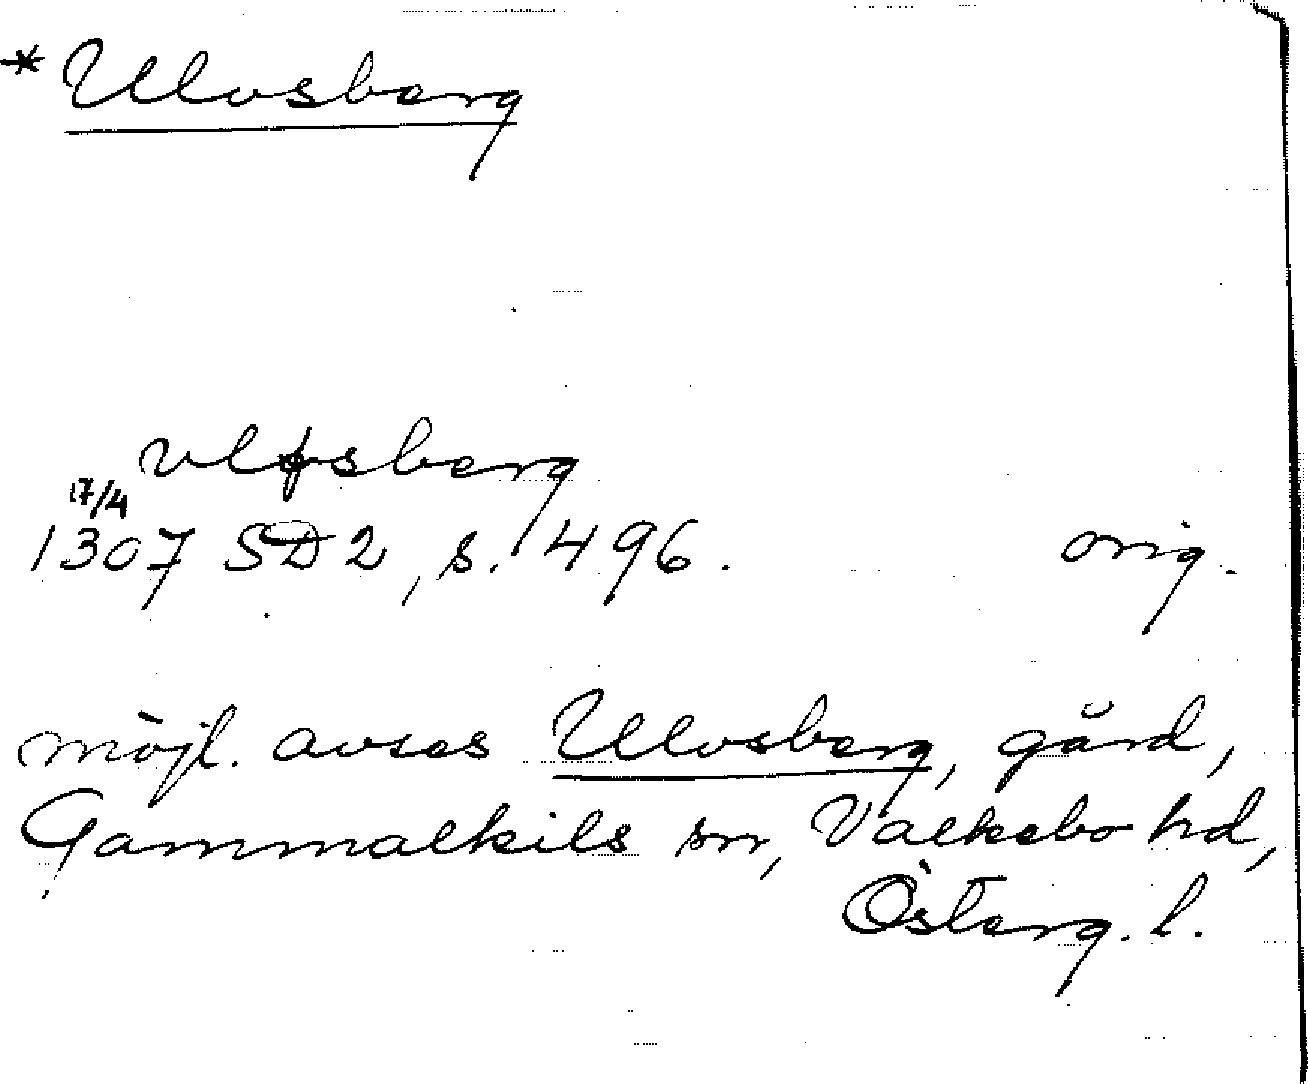 * Ulvsberg
vlfsberg
17/4
1307 SD 2, s. 496. orig.
möjl. avses Ulvsberg, gård,
Gammalkils sn, Valkebo hd,
Österg. l.